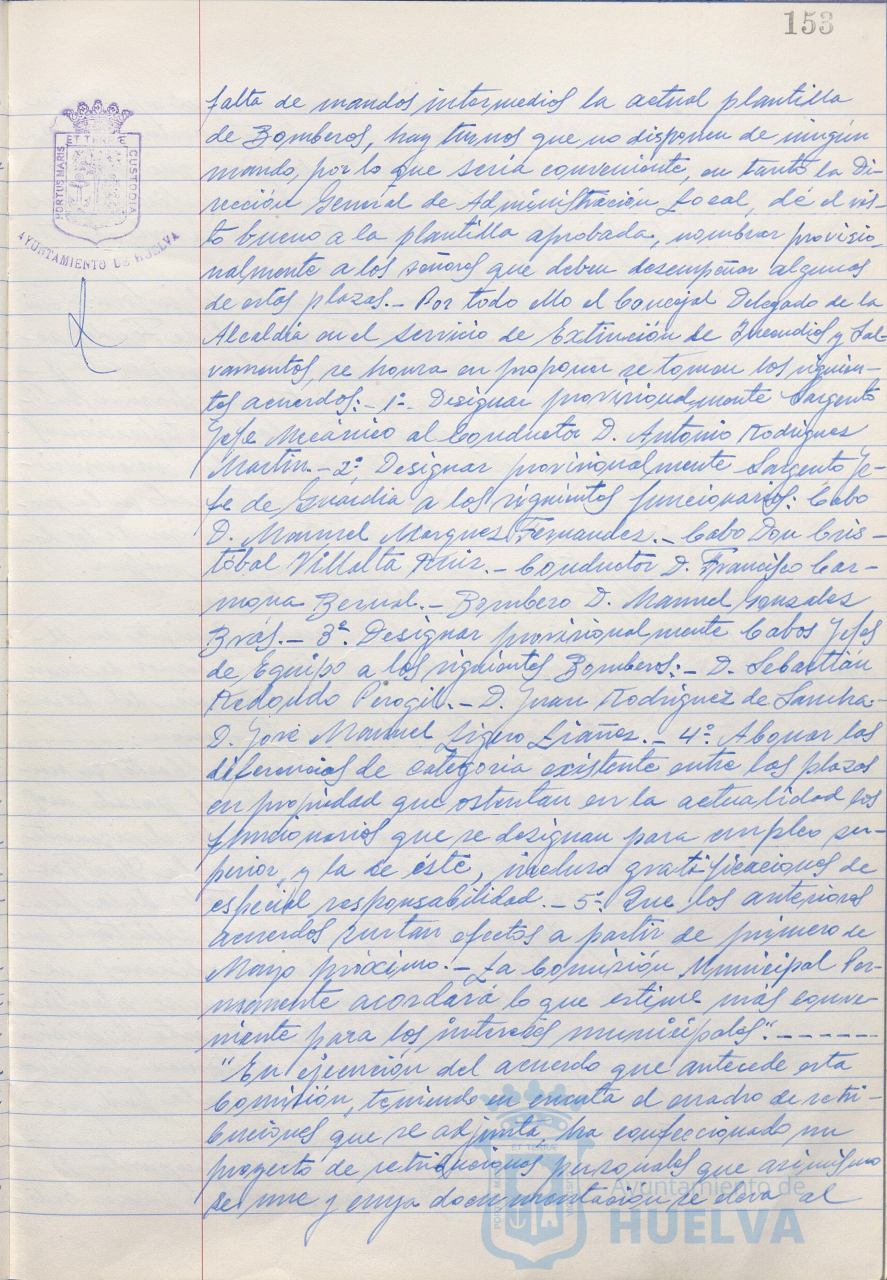 153
ET TERRE
PORTUS MARIS
CUSTODIA
AYUNTAMIENTO DE HUELVA
falta de mandos intermedios la actual plantilla
de Bomberos, hay turnos que no disponen de ningún
mando, por lo que sería conveniente, en tanto la Di-
rección General de Administración Local, dé el vis-
to bueno a la plantilla aprobada, nombrar provisio-
nalmente a los señores que deben desempeñar algunas
de estas plazas.- Por todo ello el Concejal Delegado de la
Alcaldía en el Servicio de Extinción de Incendios y Sal-
vamentos, se honra en proponer se toman los siguien-
tes acuerdos:- 1º- Designar provisionalmente Sargento
Jefe Mecánico al Conductor D. Antonio Rodríguez
Martín.- 2º. Designar provisionalmente Sargento Je-
fe de Guardia a los siguientes funcionarios: Cabo
D. Manuel Marquez Fernandez.- Cabo Don Cris-
tóbal Villalta Ruiz.- Conductor D. Francisco Car-
mona Bernal.- Bombero D. Manuel Gonzalez
Brás.- 3º. Designar provisionalmente Cabos Jefes
de Equipo a los siguientes Bomberos:- D. Sebastián
Redondo Perogil.- D. Juan Rodríguez de Sancha-
D. José Manuel Ligero Liañez.- 4º. Abonar las
diferencias de categoria existente entre las plazas
en propiedad que ostentan en la actualidad los
funcionarios que se designan para empleo su-
perior, y la de éste, incluso gratificaciones de
especial responsabilidad.- 5º. Que los anteriores
acuerdos surtan efectos a partir de primero de
Mayo próximo.- La Comisión Municipal Per-
manente acordará lo que estime más conve-
niente para los intereses municipales".------
"En ejecución del acuerdo que antecede esta
Comisión, teniendo en cuenta el cuadro de retri-
buciones que se adjunta, ha confeccionado un
proyecto de retribuciones personales que asimismo
se une y cuya documentación se eleva al
Ayuntamiento de
HUELVA